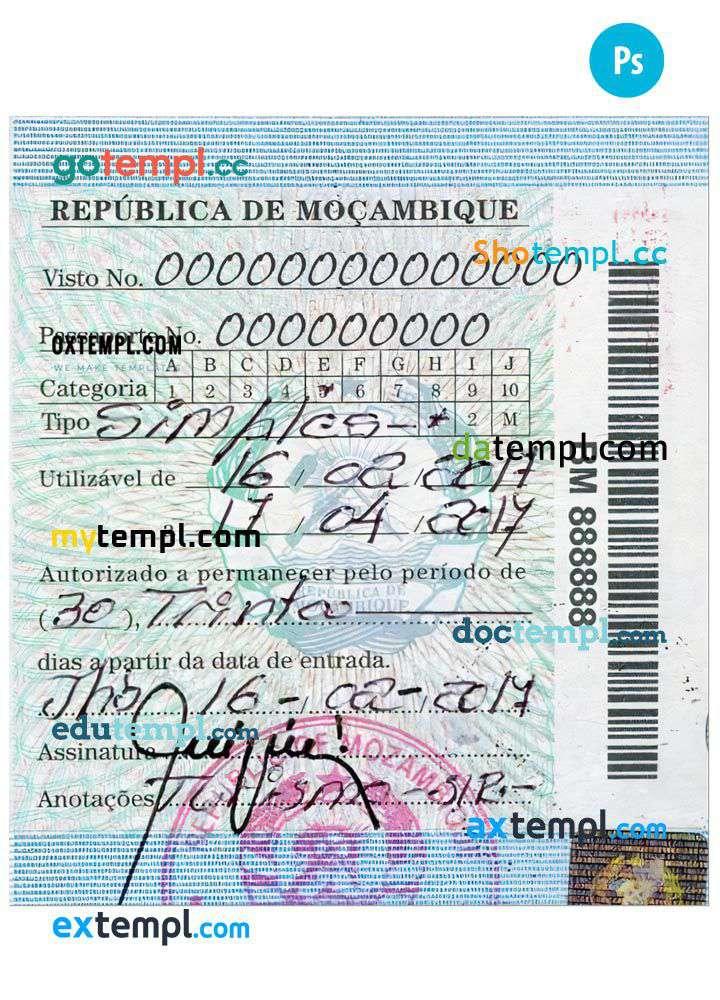 Ps
gotempl.cc
REPÚBLICA DE MOÇAMBIQUE
Shotempl.cc
Visto No. 00000000000000
Passaporte No. 000000000
OXTEMPL.COM
WE MAKE TEMPLATES
A B C D E F G H I J
Categoria 1 2 3 4 5 6 7 8 9 10
Tipo Simples-* 2 M
datempl.com
Utilizável de 16 / 02 / 2017
a 17 / 04 / 2017
BM 888888
mytempl.com
Autorizado a permanecer pelo período de
REPÚBLICA DE
MOÇAMBIQUE
(30), Trinta
doctempl.com
dias a partir da data de entrada.
16 - / 02 - / 2017
edutempl.com
Assinatura
REPÚBLICA DE MOZAMBIQUE
Anotações
axtempl.com
extempl.com